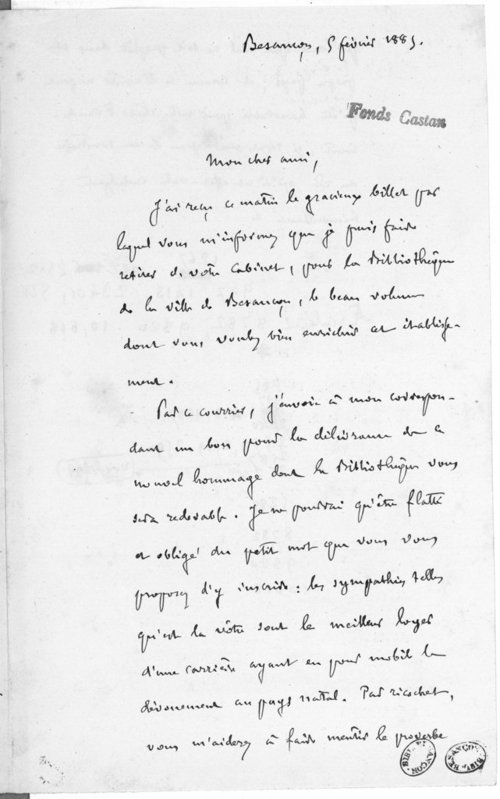 Besançon, 5 février 1885.
Fonds Castan
Mon cher ami,
J'ai reçu ce matin le gracieux billet par
lequel vous m'informez que je puis faire
retirer de votre cabinet, pour la Bibliothèque
de la ville de Besançon, le beau volume
dont vous voulez bien enrichir cet établisse-
ment.
Par ce courrier, j'envoie à mon correspon-
dant un bon pour la délivrance de ce
nouvel hommage dont la Bibliothèque vous
sera redevable. Je ne pourrai qu'être flatté
et obligé du petit mot que vous vous
proposez d'y inscrire : les sympathies telles
qu'est la vôtre sont le meilleur loyer
d'une carrière ayant eu pour mobile le
dévouement au pays natal. Par ricochet,
vous m'aiderez à faire mentir le proverbe